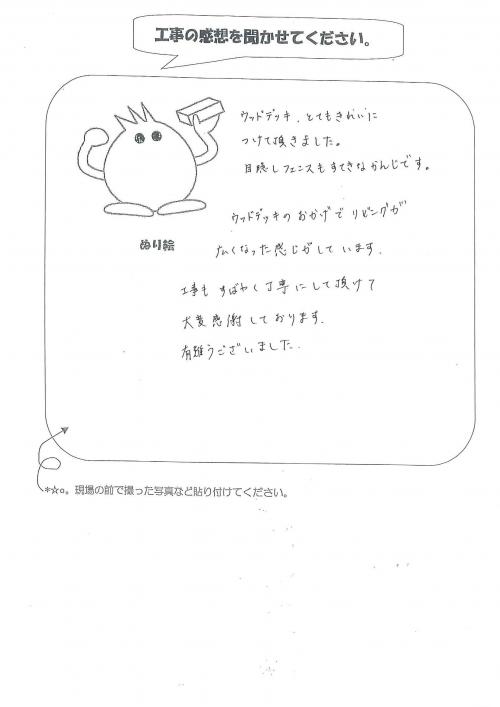 工事の感想を聞かせてください。
ウッドデッキ、とてもきれいに
つけて頂きました。
目隠しフェンスもすてきなかんじです。
ウッドデッキのおかげでリビングが
広くなった感じがしています。
ぬり絵
工事もすばやく丁寧にして頂けて
大変感謝しております。
有難うございました。
*☆o。現場の前で撮った写真など貼り付けてください。